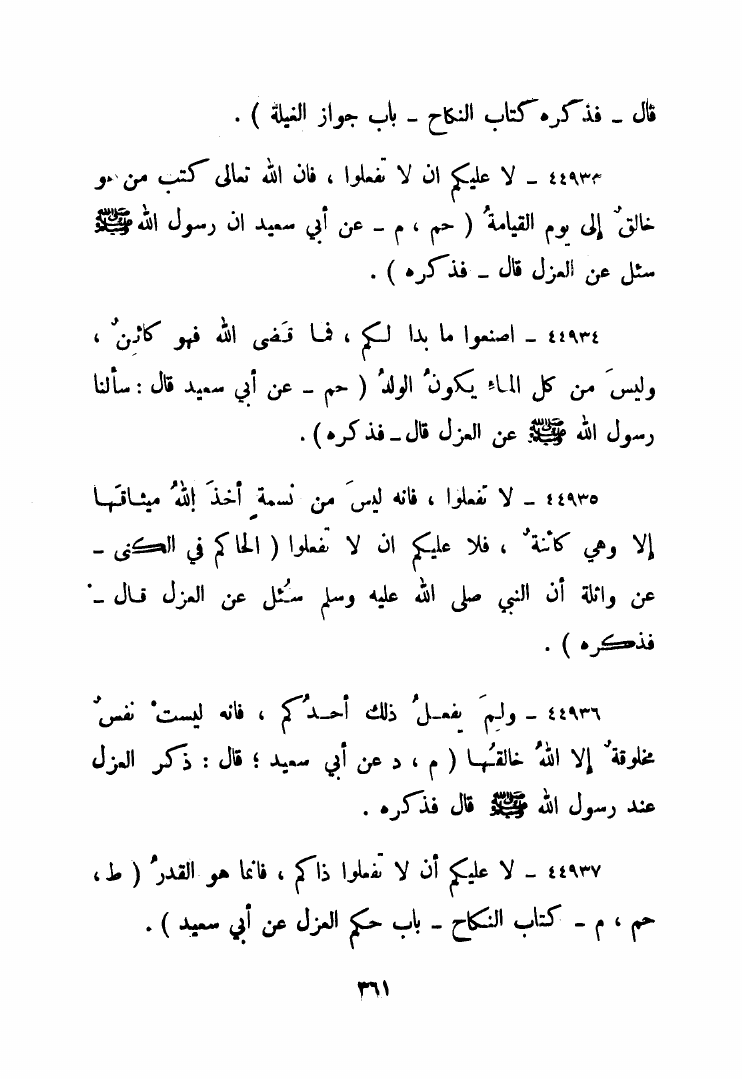 قال ـ فذكره كتاب النكاح ـ باب جواز الغيلة ) .
٤٤٩٣٣ ـ لا عليكم ان لا تفعلوا ، فان الله تعالى كتب من هو
خالقٌ إلى يوم القيامةُ ( حم ، م ـ عن أبي سعيد ان رسول الله ﷺ
سئل عن العزل قال ـ فذكره ) .
٤٤٩٣٤ ـ اصنعوا ما بدا لكم ، فما قَضى الله فهو كائِنٌ ،
وليسَ من كل الماءِ يكونُ الولدُ ( حم ـ عن أبي سعيد قال : سألنا
رسول الله ﷺ عن العزل قال ـ فذكره ) .
٤٤٩٣٥ ـ لا تفعلوا ، فانه ليسَ من نسمةٍ أخذَ اللهُ ميثاقَها
إلا وهي كائنةٌ ، فلا عليكم ان لا تفعلوا ( الحاكم في الكنى ـ
عن واثلة أن النبي صلى الله عليه وسلم سُئل عن العزل قال ـ
فذكره ) .
٤٤٩٣٦ ـ ولِمَ يفعلُ ذلك أحدُكم ، فانه ليستْ نفسٌ
مخلوقةٌ إلا اللهُ خالقُها ( م ، د عن أبي سعيد ؛ قال : ذكر العزل
عند رسول الله ﷺ قال فذكره .
٤٤٩٣٧ ـ لا عليكم أن لا تفعلوا ذاكم ، فانما هو القدرُ ( ط ،
حم ، م ـ كتاب النكاح ـ باب حكم العزل عن أبي سعيد ) .
٣٦١